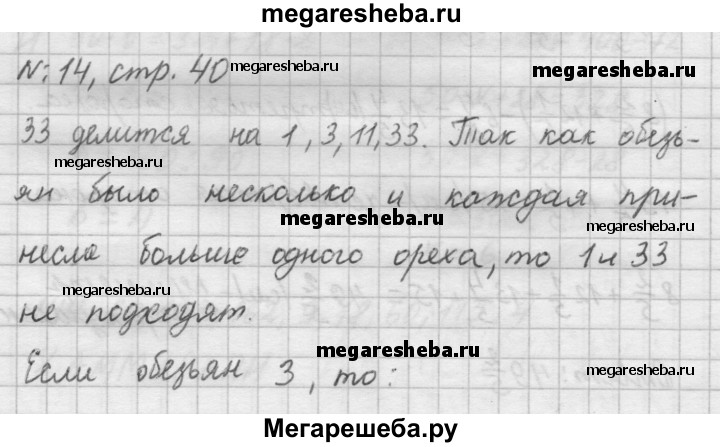 megaresheba.ru
№ 14, стр. 40 megaresheba.ru megaresheba.ru
33 делится на 1, 3, 11, 33. Так как обезь-
megaresheba.ru megaresheba.ru
ян было несколько и каждая при-
megaresheba.ru megaresheba.ru
несла больше одного ореха, то 1 и 33
megaresheba.ru megaresheba.ru
не подходят.
megaresheba.ru
Если обезьян 3, то:
megaresheba.ru megaresheba.ru
Мегарешеба.ру